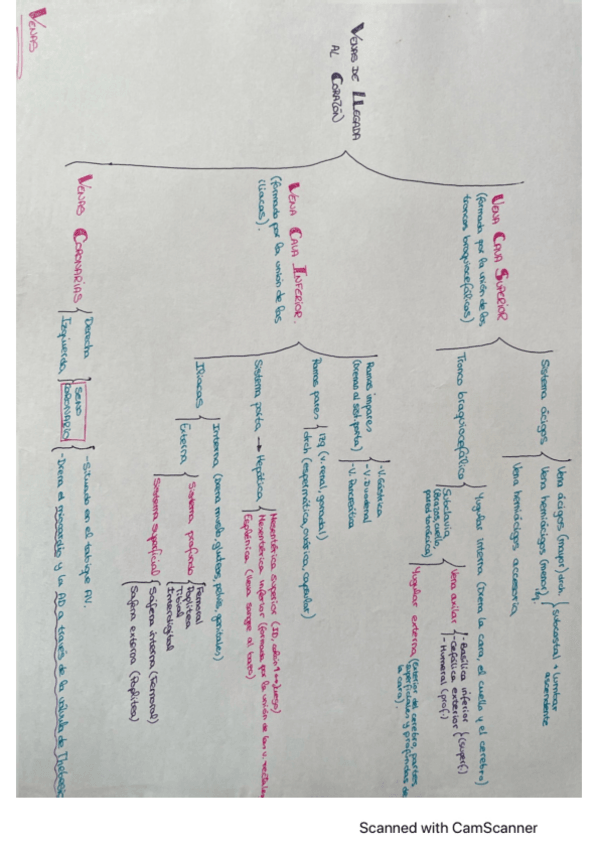 VENAS
VENAS DE LLEGADA
AL CORAZÓN
VENA CAVA SUPERIOR
(formada por la unión de los
troncos braquiocefálicos)
Sistema ácigos
Vena ácigos (mayor) drch.
Vena hemiácigos (menor) inf.
subcostal + lumbar
ascendente
Vena hemiácigos accesoria
Tronco braquiocefálico
Yugular interna (Drena la cara, el cuello y el cerebro)
Subclavia
(Brazos, cuello,
pared torácica)
Vena axilar
- Basílica inferior
- Cefálica exterior
(superf.)
- Humeral (prof.)
Yugular externa
(exterior del cerebro, partes
superficiales y profundas de
la cara).
VENA CAVA INFERIOR.
(formada por la unión de las
ilíacas).
Ramas impares
(drenan al sist. porta)
- V. Gástrica
- V. Duodenal
- V. Pancreática
Ramas pares
izq (v. renal, gonadal)
drch (espermática, ovárica, capsular)
Sistema porta → Hepática
Mesentérica superior (ID, colon
Mesentérica inferior (formada por la unión de las v. rectales
Esplénica (lleva sangre al bazo)
Ilíacas
Interna (Drena muslo, glúteos, pelvis, genitales)
Externa
Sistema profundo
Femoral
Poplítea
Tibial
Interdigital
Sistema superficial
Safena interna (Femoral)
Safena externa (Poplítea)
VENAS CORONARIAS
Derecha
Izquierda
SENO
CORONARIO
- Situado en el tabique AV.
- Drena el miocardio y la AD a través de la válvula de Thebesio
Scanned with CamScanner